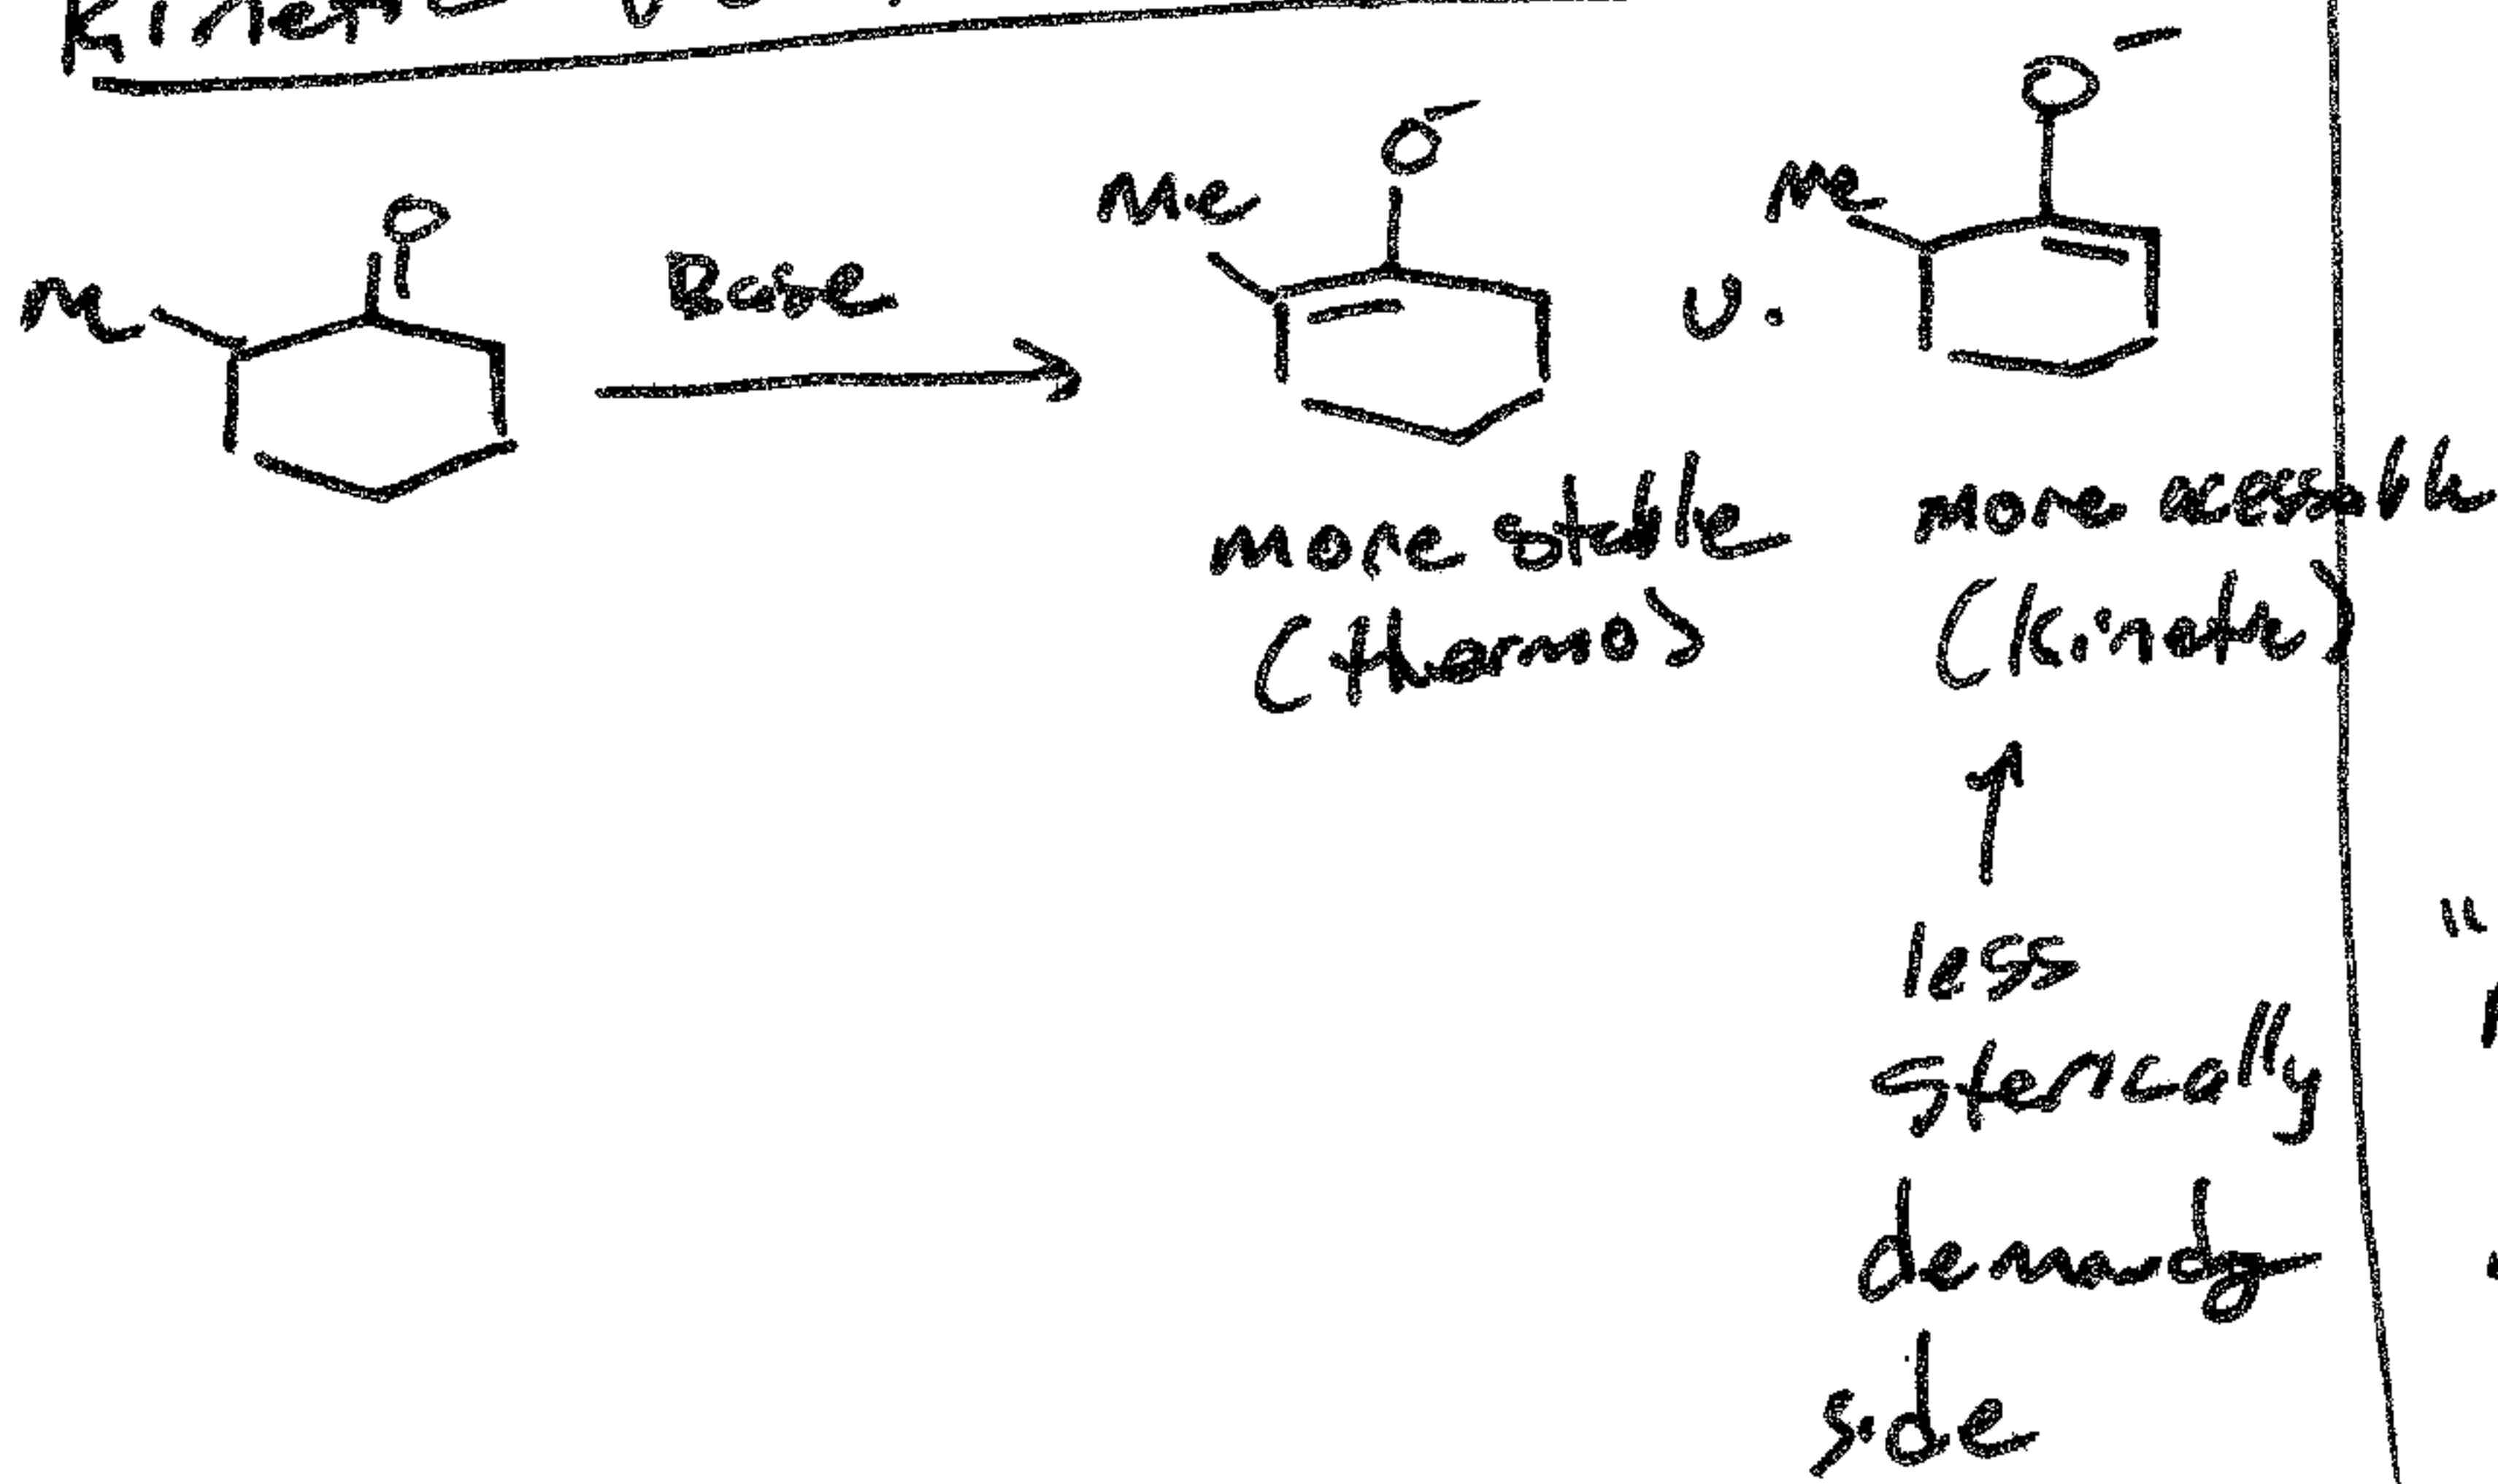 Kinetic v
O
Me
Base
Me
O-
v.
Me
O-
more stable
(thermo)
more acessable
(kinetic)
less
sterically
demandg
side
"